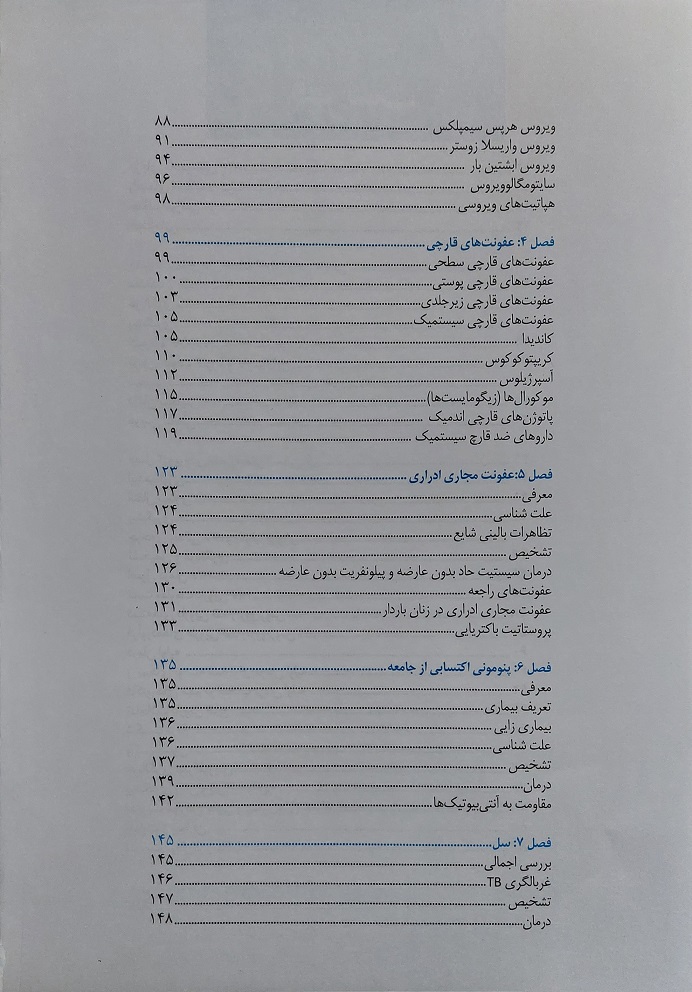 ویروس هرپس سیمپلکس ........ ۸۸
ویروس واریسلا زوستر ........ ۹۱
ویروس ابشتین بار ........ ۹۴
سایتومگالوویروس ........ ۹۶
هپاتیت‌های ویروسی ........ ۹۸
فصل ۴: عفونت‌های قارچی ........ ۹۹
عفونت‌های قارچی سطحی ........ ۹۹
عفونت‌های قارچی پوستی ........ ۱۰۰
عفونت‌های قارچی زیرجلدی ........ ۱۰۳
عفونت‌های قارچی سیستمیک ........ ۱۰۵
کاندیدا ........ ۱۰۵
کریپتوکوکوس ........ ۱۱۰
آسپرژیلوس ........ ۱۱۲
موکورال‌ها (زیگومایست‌ها) ........ ۱۱۵
پاتوژن‌های قارچی اندمیک ........ ۱۱۷
داروهای ضد قارچ سیستمیک ........ ۱۱۹
فصل ۵:عفونت مجاری ادراری ........ ۱۲۳
معرفی ........ ۱۲۳
علت شناسی ........ ۱۲۴
تظاهرات بالینی شایع ........ ۱۲۴
تشخیص ........ ۱۲۵
درمان سیستیت حاد بدون عارضه و پیلونفریت بدون عارضه ........ ۱۲۶
عفونت‌های راجعه ........ ۱۳۰
عفونت مجاری ادراری در زنان باردار ........ ۱۳۱
پروستاتیت باکتریایی ........ ۱۳۳
فصل ۶: پنومونی اکتسابی از جامعه ........ ۱۳۵
معرفی ........ ۱۳۵
تعریف بیماری ........ ۱۳۵
بیماری زایی ........ ۱۳۶
علت شناسی ........ ۱۳۶
تشخیص ........ ۱۳۷
درمان ........ ۱۳۹
مقاومت به آنتی‌بیوتیک‌ها ........ ۱۴۲
فصل ۷: سل ........ ۱۴۵
بررسی اجمالی ........ ۱۴۵
غربالگری TB ........ ۱۴۶
تشخیص ........ ۱۴۷
درمان ........ ۱۴۸